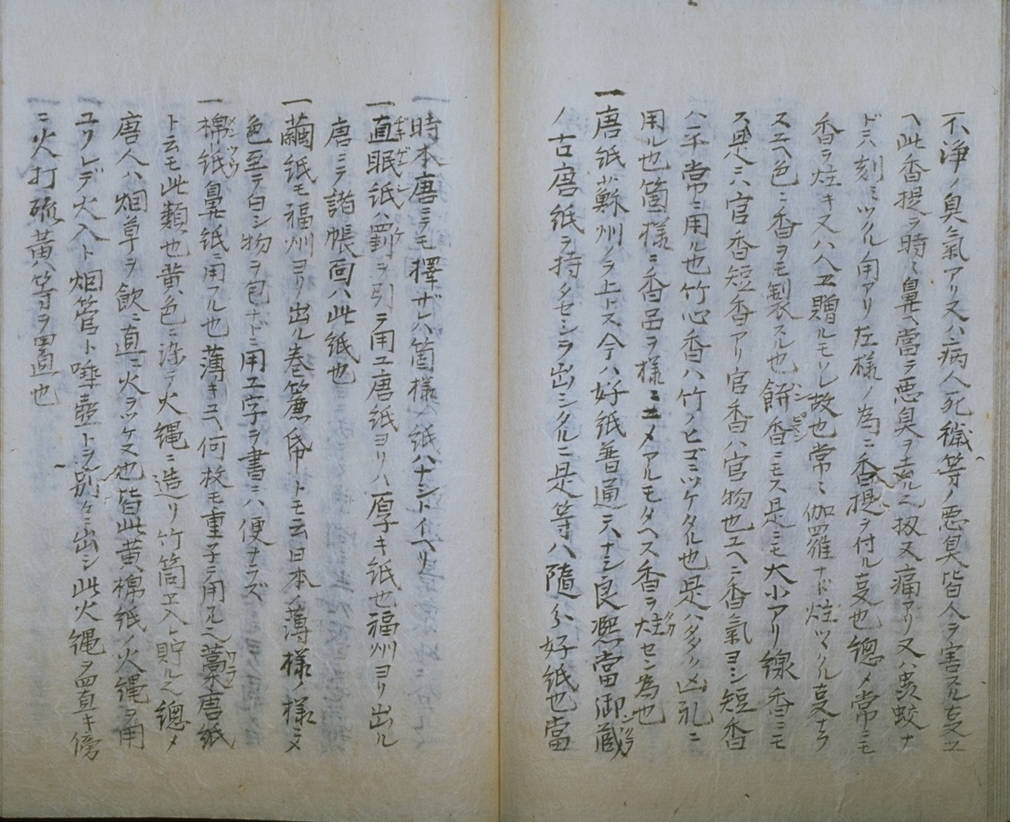 不浄ノ臭氣アリ又ハ病人死穢等ノ悪臭皆人ヲ害スル事ユ
ヘ此香提ヲ時々鼻ヘ當ヲ悪臭ヲ 扨又痛アリ又ハ虫蛟ナ
ドニハ刻ミツクル角アリ左様ノ為ニ香提ヲ付ル事也總メ常ニモ
香ヲ炷キ又ハ人ヱ贈ルモソレ故也常ニ伽羅ナド炷ツクル事ナラ
スユヘ色々香ヲモ製スル也餅香ニモス是ニモ大小アリ線香ニモ
ス是ニハ官香短香アリ官香ハ官物也ユヘニ香氣ヨシ短香
ハ平常ニ用ル也竹心香ハ竹ノヒゴニツケタル也是ハタヾ凶礼ニ
用ル也箇様ニ香品ヲ様ニヱメアルモタヘス香ヲ炷セン為也
一唐紙ハ蘇州ノヲ上トス今ハ好紙普通ニハナシ良凞當御蔵
ノ古唐紙ヲ持タセシヲ出シクルニ是等ハ隨分好紙也當
時本唐ニヲモ擇ザレハ箇様ノ紙ハナシトイヘリ
一直眠紙ハ罰ヲ引ヲ用ユ唐紙ヨリハ厚キ紙也福州ヨリ出ル
唐ニヲ諸帳面ハ此紙也
一繭紙モ福州ヨリ出ル巻簾帋トモ云日本薄様ノ様ニメ
色至ヲ白シ物ヲ包ナドニ用ユ字ヲ書ニハ便ナラズ
一棉紙鼻紙ニ用フル也薄キユヘ何枚モ重子テ用フル也藁唐紙
ト云モ此類也黄色ニ染テ火縄ニ造リ竹筒ヱ入レ貯ル也總メ
唐人ハ烟草ヲ飲ニ直ニ火ヲツケヌ也皆此黄棉紙ノ火縄ヲ用
ユソレデ火入ト烟管ニト唾壺トヲ別々ニ出シ此火縄ヲ皿直キ傍
ニ火打硫黄等ヲ置也